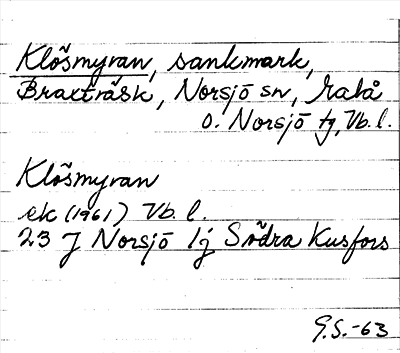 Klösmyran, sankmark,
Braxträsk, Norsjö sn, Malå
o. Norsjö tg, Vb. l.
Klösmyran
ek (1961) Vb. l.
23 J Norsjö lj Södra Kusfors
G.S.-63